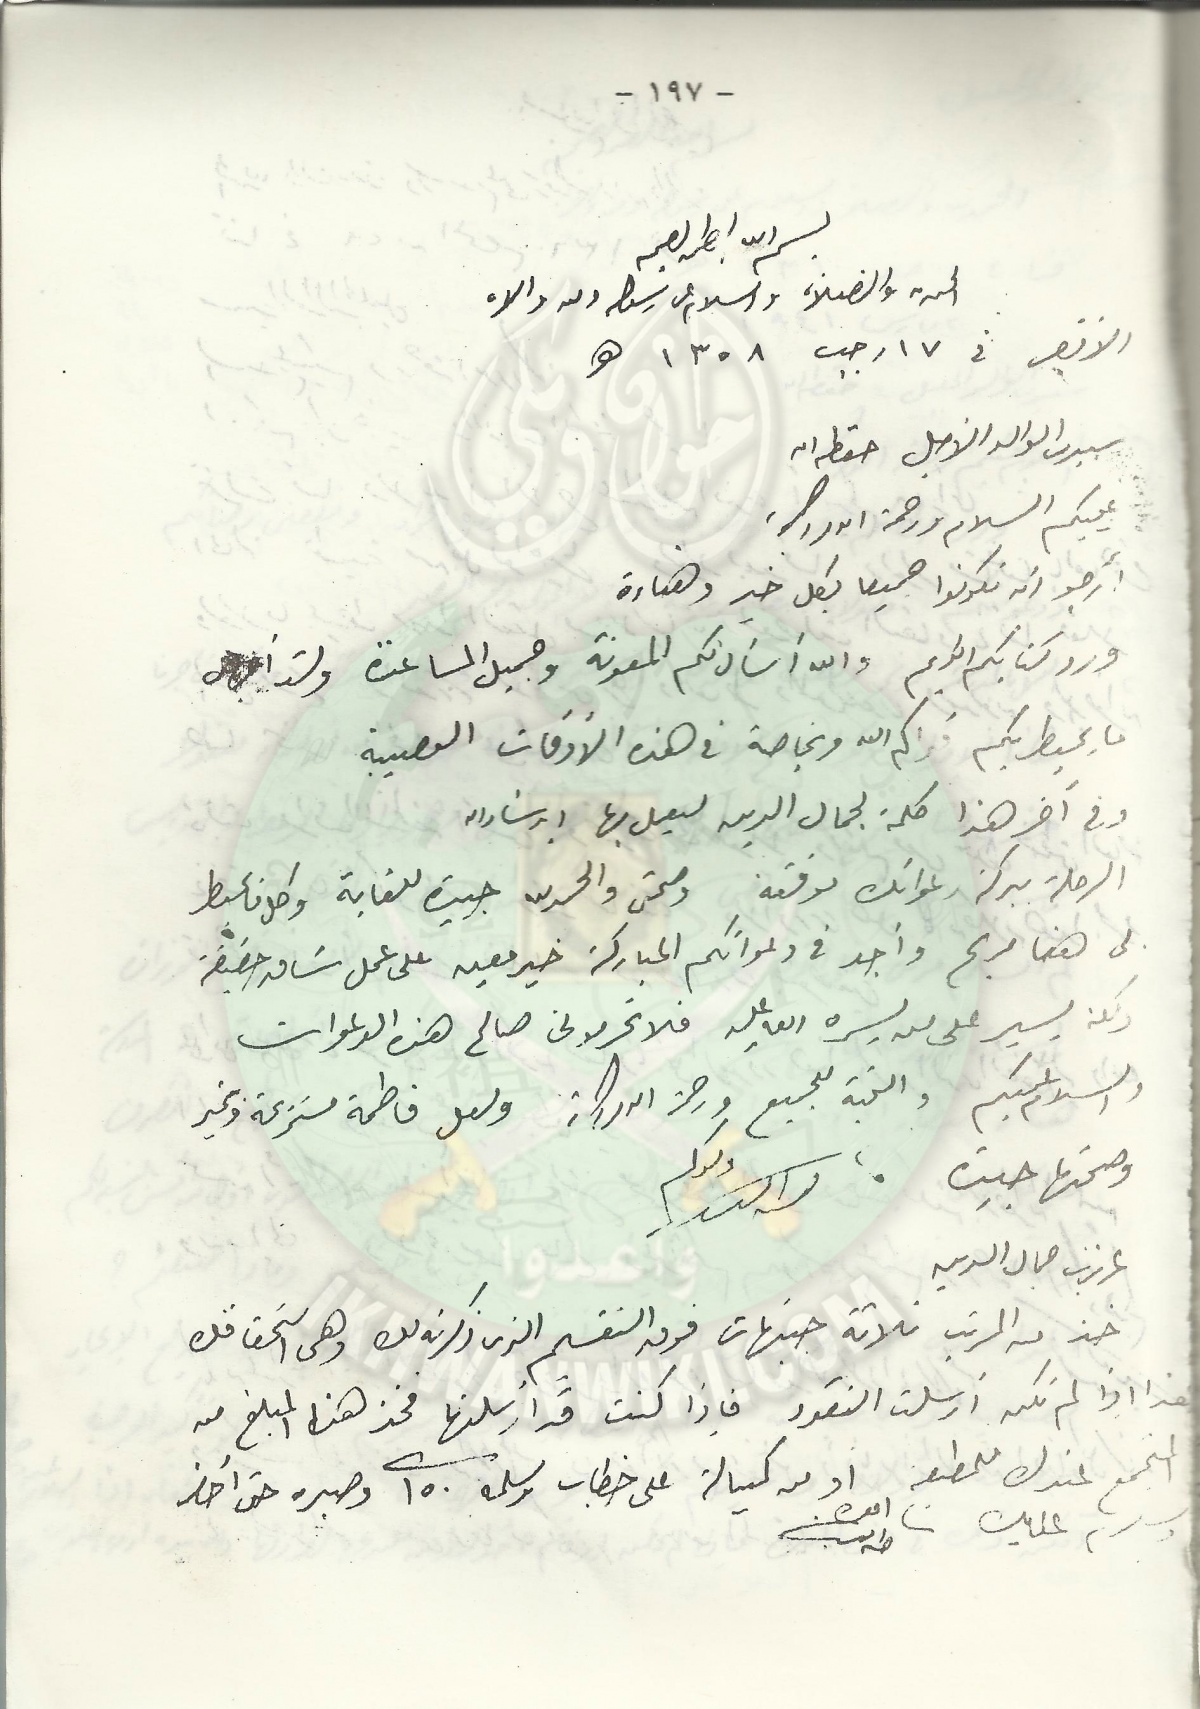 - ١٩٧ -
بسم الله الرحمن الرحيم
الحمد لله والصلاة والسلام على رسول الله ومن والاه
الأقصر في ١٧ رجب ١٣٥٨ هـ
سيدي الوالد الأجل حفظه الله
عليكم السلام ورحمة الله وبركاته
أرجو أن تكونوا جميعا بكل خير وهناءة
ورد كتابكم الكريم والله أسأل لكم المعونة وجميل المساعدة ولقد
ما يحيط بكم قواكم الله وبخاصة في هذه الأوقات العصيبة
وفي آخر هذا كلمة لجمال الدين ليعمل بها إن شاء الله
الرحلة ببركة دعواتك موفقة وصحتي والحمد لله جيدة للغاية وكل ما يحيط
بي هنا مريح وأجد في دعواتكم المباركة خير معين على عمل شاق حقيقة
ولكنه يسير على من يسره الله عليه فلا تحرموني صالح هذه الدعوات
والسلام عليكم والتحية للجميع ورحمة الله وبركاته ولعل فاطمة مستريحة وبخير
وصحتها جيدة
ولدكم
عزيزي جمال الدين
خذ من المرتب ثلاثة جنيهات فوق التقسيم الذي ذكرته لك وهي استحقاقك
هذا إذا لم تكن أرسلت النقود فإذا كنت قد أرسلتها فخذ هذا المبلغ من
المتجمع عندك للمطبعة أو من كمبيالة على خطاب وسلمه ١٥٠ وصبره حتى أحضر
والسلام عليك